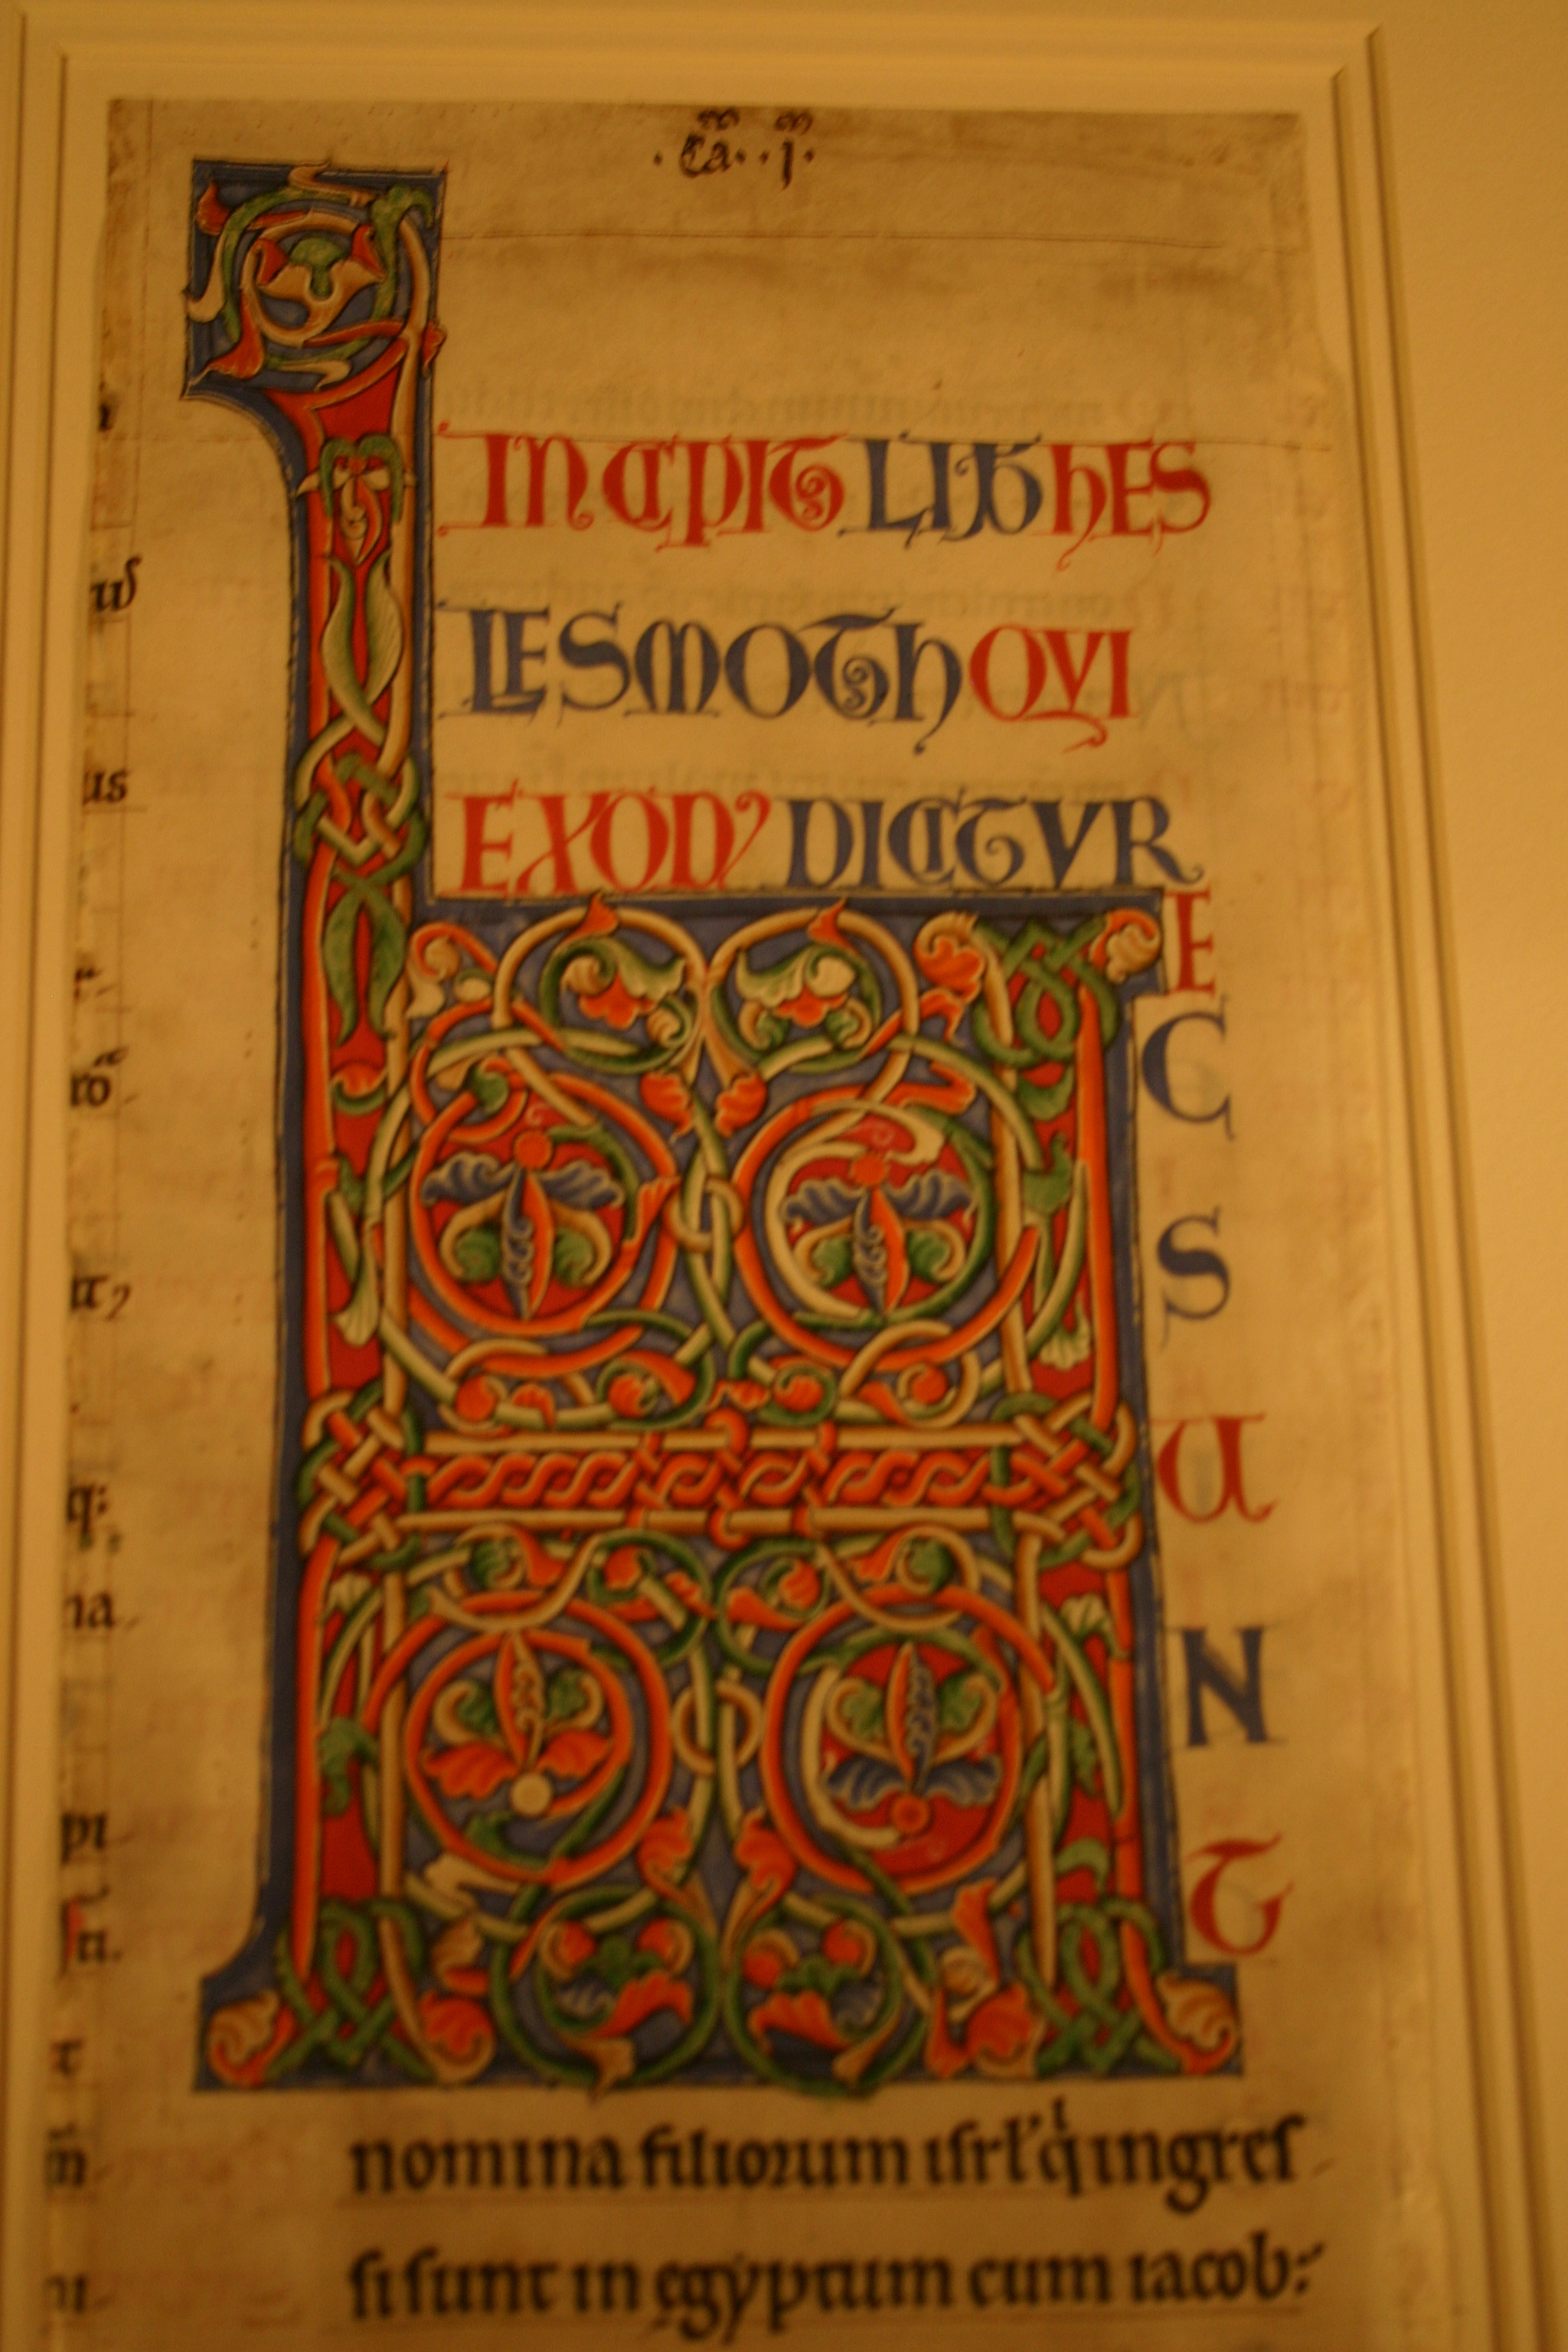 ·Ca··j·
INCIPIT LIB hES
LESMOTh QVI
EXOD' DICITVR
hEC
SUNT
nomina filiorum isrl' q ingres
si sunt in egyptum cum iacob:
us
q:
na
pi